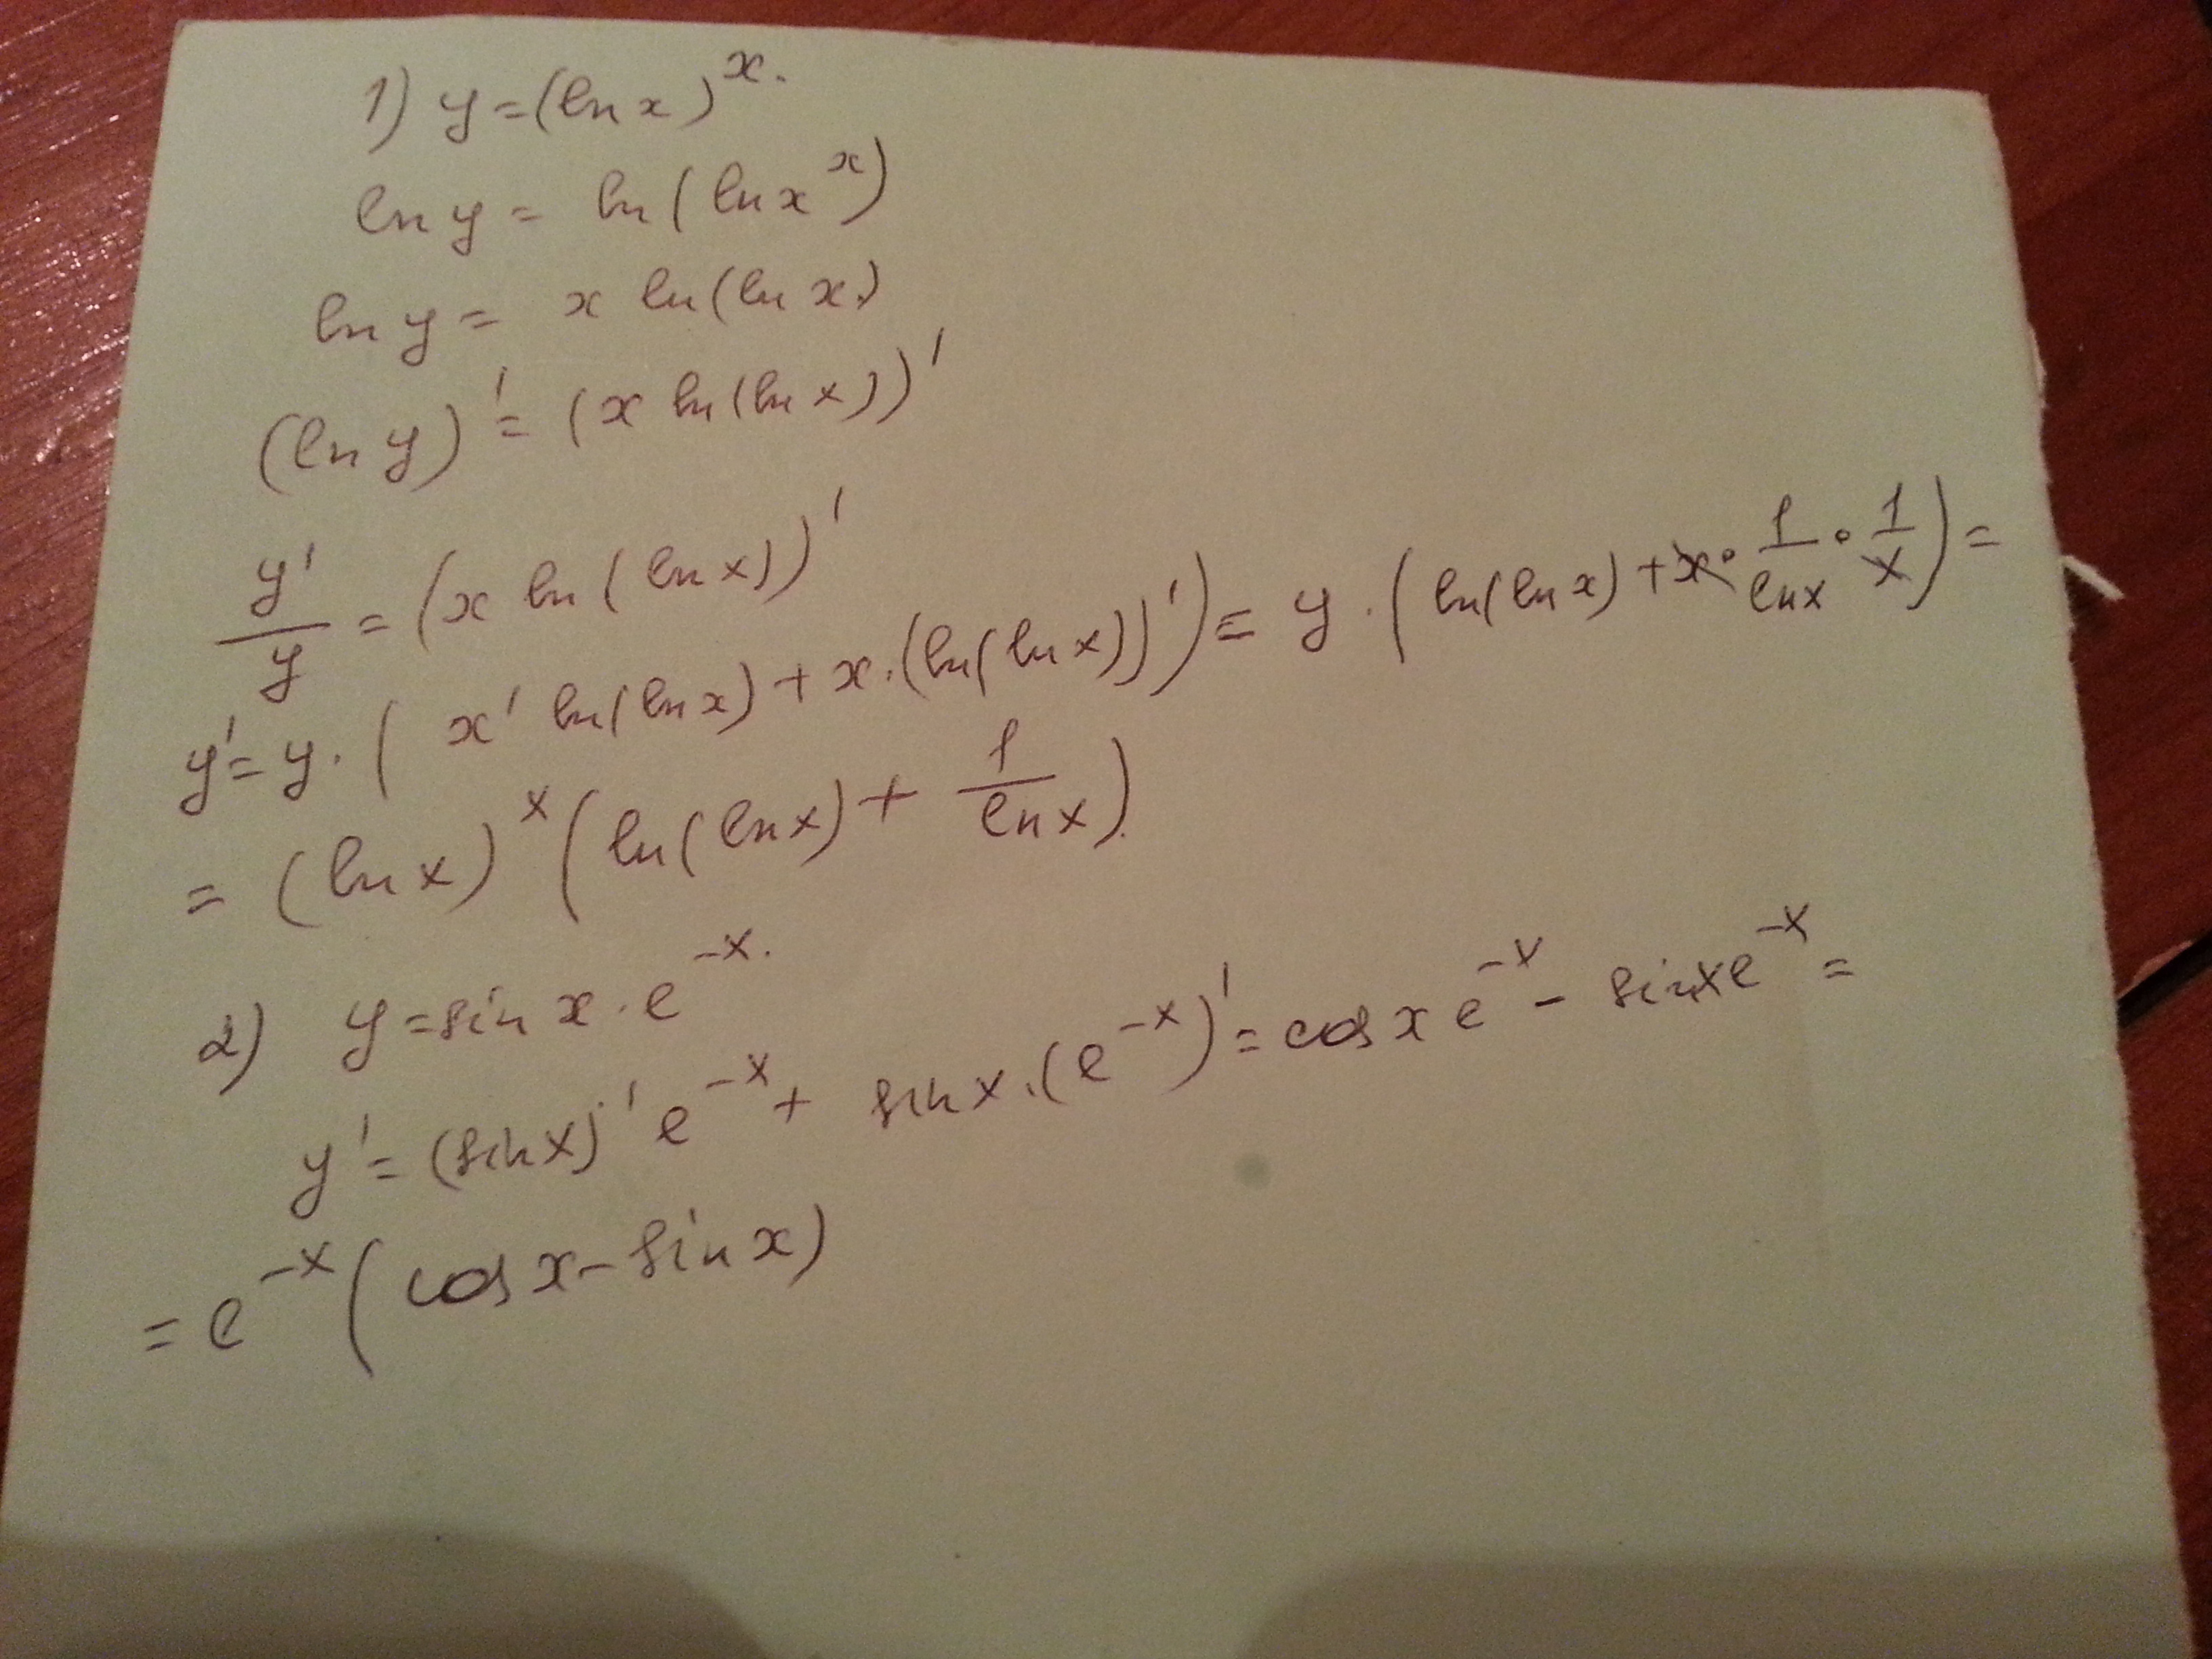 1) y=(ln x)^x.
ln y = ln(ln x^x)
ln y = x ln(ln x)
(ln y)' = (x ln(ln x))'
y'/y = (x ln(ln x))'
y' = y · (x' ln(ln x) + x · (ln(ln x))') = y · (ln(ln x) + x · 1/ln x · 1/x) =
= (ln x)^x (ln(ln x) + 1/ln x).
2) y = sin x · e^-x.
y' = (sin x)' e^-x + sin x · (e^-x)' = cos x e^-x - sin x e^-x =
= e^-x (cos x - sin x)